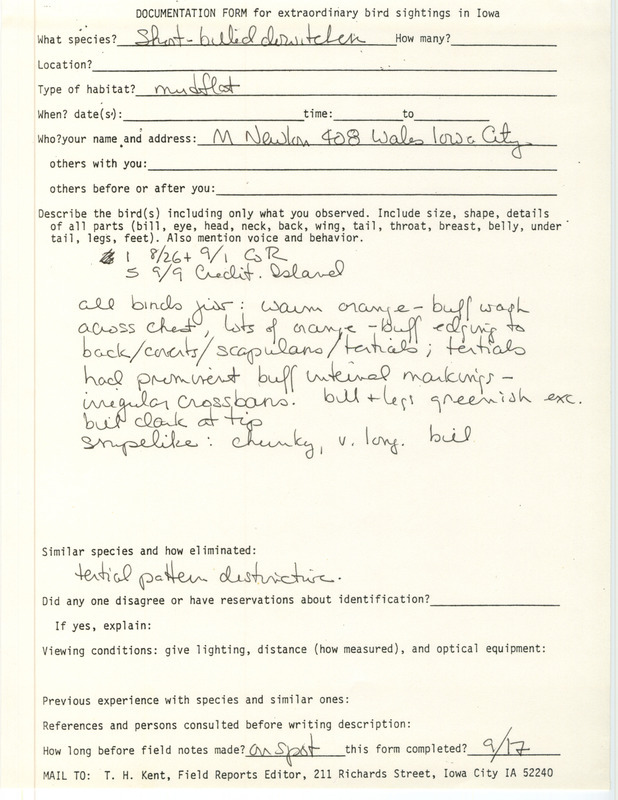 DOCUMENTATION FORM for extraordinary bird sightings in Iowa
What species? Short-billed dowitcher How many?
Location?
Type of habitat? mudflat
When? date(s): time: to
Who? your name and address: M Newlon 408 Wales Iowa City
others with you:
others before or after you:
Describe the bird(s) including only what you observed. Include size, shape, details
of all parts (bill, eye, head, neck, back, wing, tail, throat, breast, belly, under
tail, legs, feet). Also mention voice and behavior.
1 8/26 + 9/1 CoR
5 9/9 Credit. Island
all birds juv: warm orange-buff wash
across chest, lots of orange-buff edging to
back/coverts/scapulars/tertials; tertials
had prominent buff internal markings -
irregular crossbars. bill + legs greenish exc.
bill dark at tip
snipelike: chunky, v. long. bill
Similar species and how eliminated:
tertial pattern distinctive.
Did any one disagree or have reservations about identification?
If yes, explain:
Viewing conditions: give lighting, distance (how measured), and optical equipment:
Previous experience with species and similar ones:
References and persons consulted before writing description:
How long before field notes made? on spot this form completed? 9/17
MAIL TO: T. H. Kent, Field Reports Editor, 211 Richards Street, Iowa City IA 52240